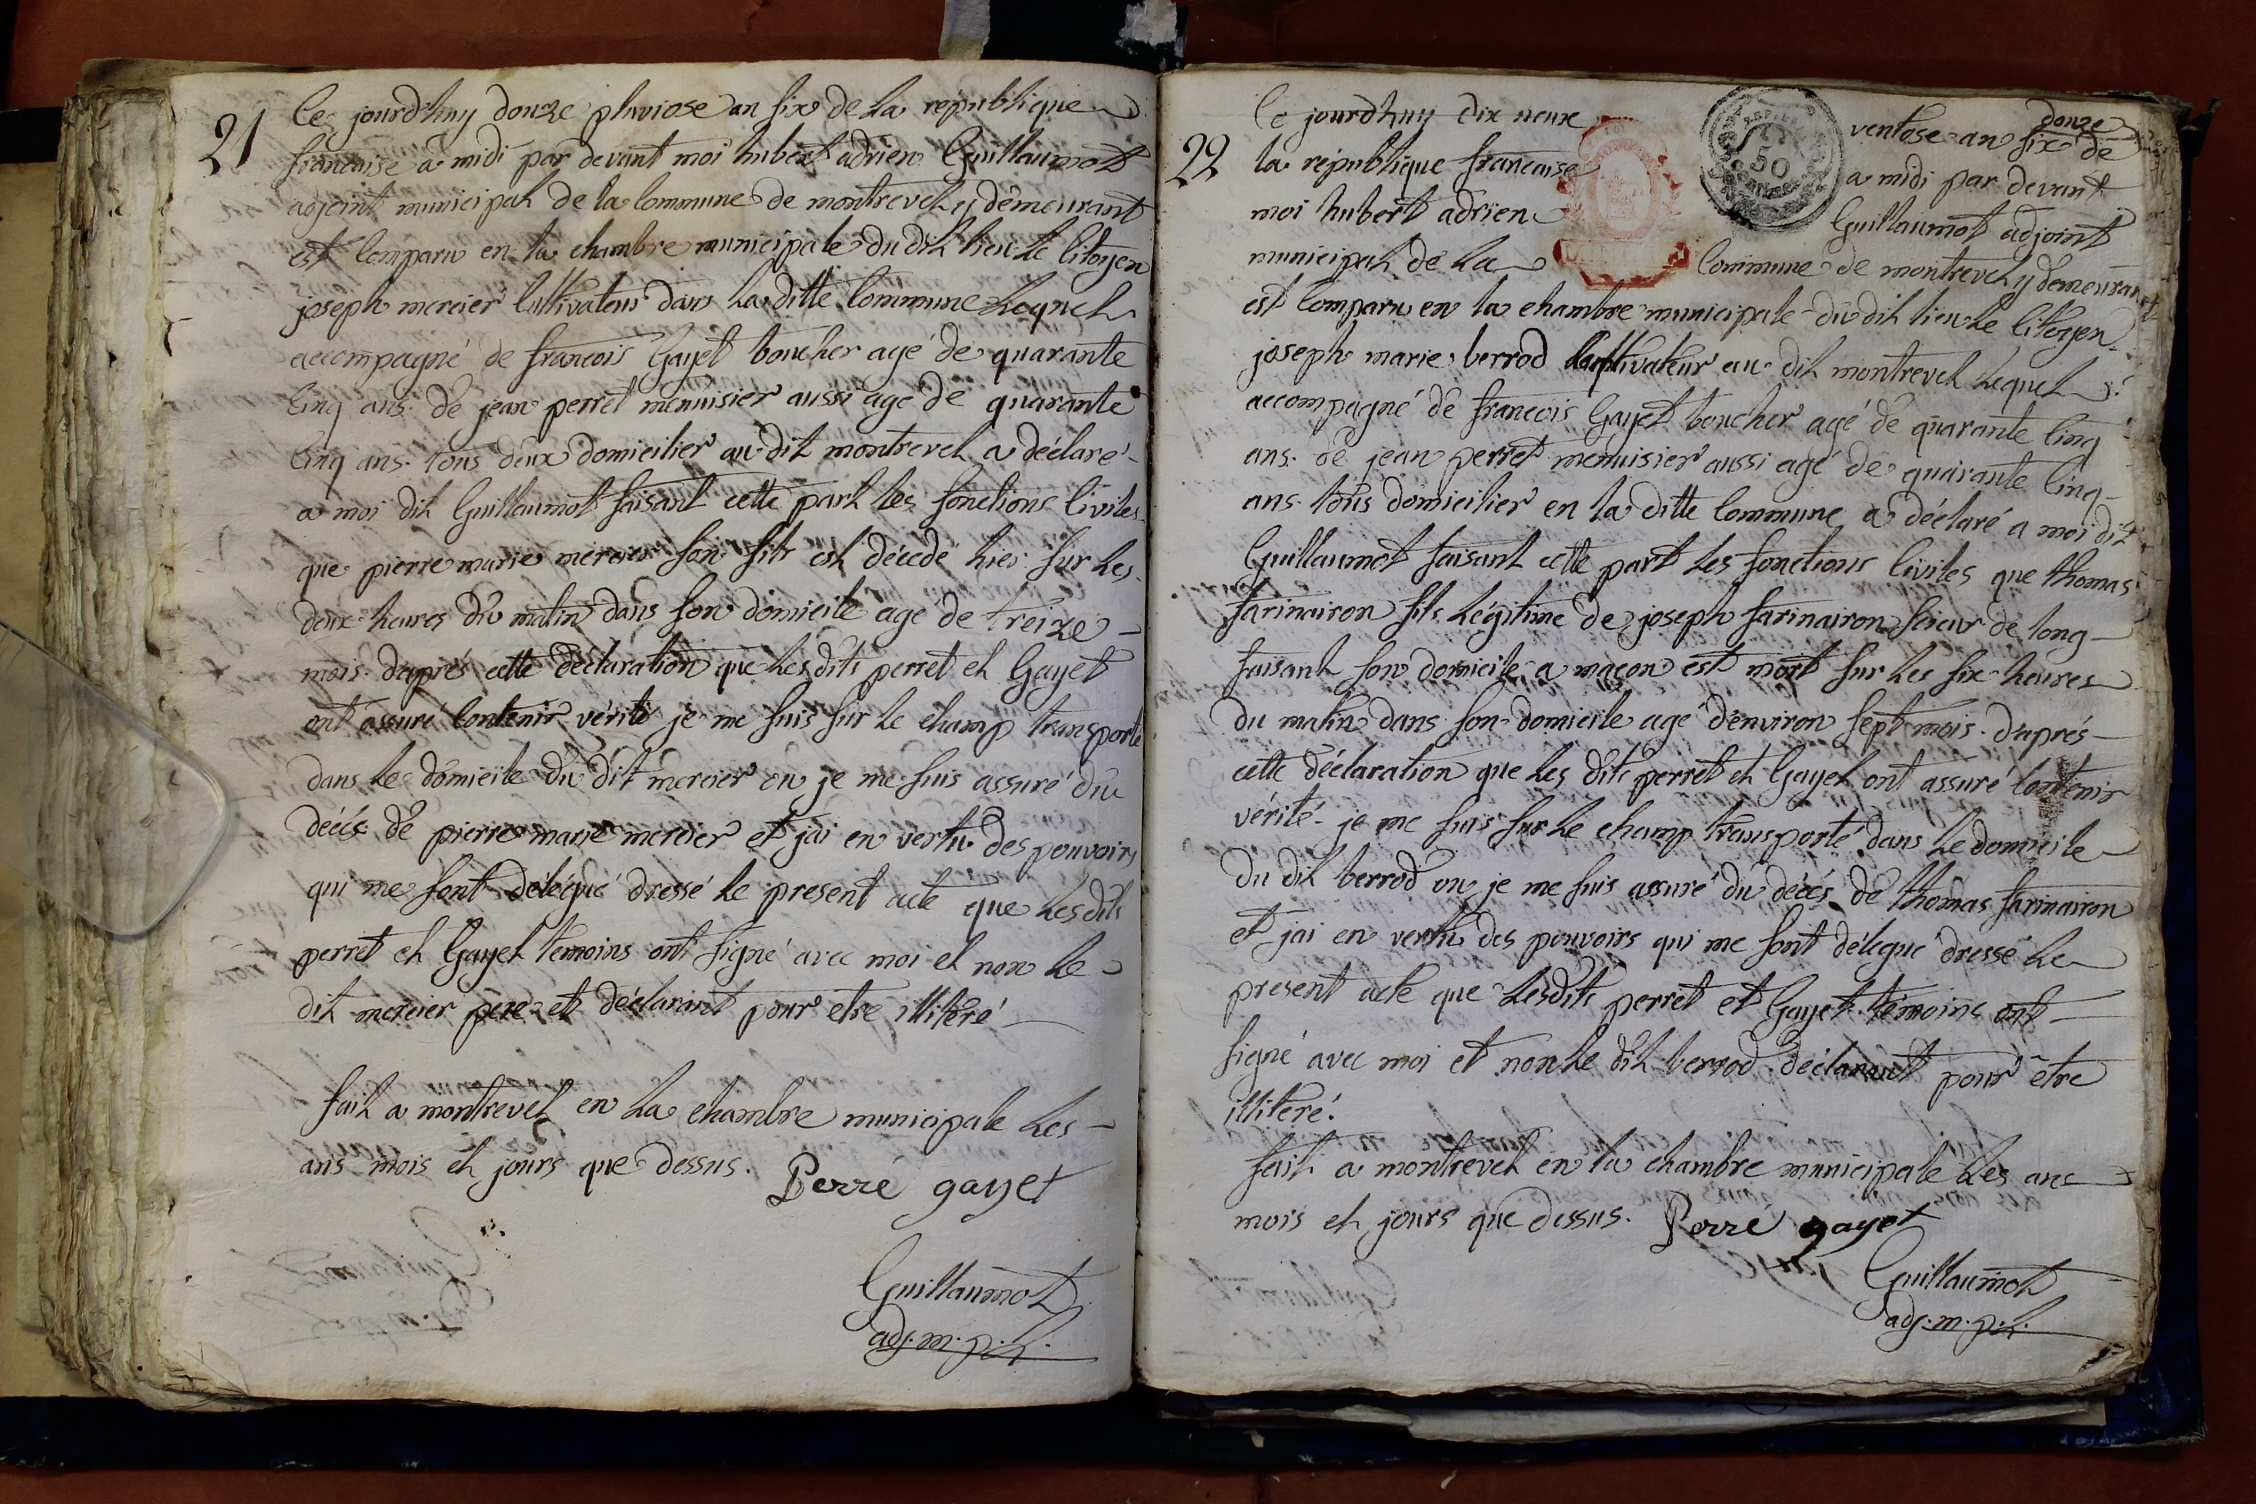 21
Ce jourd'huy douze pluviose an six de la republique
francaise a midi par devant moi hubert adrien Guillaumot
adjoint municipal de la Commune de montrevel y demeurant
est Comparu en la chambre municipale du dit lieu le Citoyen
joseph mercier Cultivateur dans la ditte Commune Lequel
accompagné de francois Gayet boucher agé de quarante
Cinq ans. de jean perret menuisier aussi agé de quarante
Cinq ans. tous deux domicilier au dit montrevel a déclaré
a moi dit Guillaumot faisant cette part les fonctions Civiles
que pierre marie mercier son fils est décedé hier sur les
deux heures du matin dans son domicile agé de treize
mois. daprés cette déclaration que lesdits perret et Gayet
ont assuré Contenir vérité je me suis sur le champ transporté
dans le domicile du dit mercier ou je me suis assuré du
décés de pierre marie mercier et jai en vertu des pouvoirs
qui me sont délégué dressé le present acte que lesdits
perret et Gayet temoins ont signé avec moi et non le
dit mercier pere et déclarant pour etre illiteré
fait a montrevel en la chambre municipale les
ans mois et jours que dessus. Perré gayet
Guillaumot
adj. m. p. l.
22
Ce jourdhuy dix neuf ventose an six de
douze
la république francaise a midi par devant
moi hubert adrien Guillaumot adjoint
municipal de la Commune de montrevel y demeurant
50
est Comparu en la chambre municipale du dit lieu le Citoyen
joseph marie berrod Cultivateur au dit montrevel Lequel
accompagné de francois Gayet boucher agé de quarante Cinq
ans. de jean perret menuisier aussi agé de quarante Cinq
ans. tous domicilier en la ditte Commune a déclaré a moi dit
Guillaumot faisant cette part les fonctions Civiles que thomas
farinairon fils légitime de joseph farinairon scieur de long
faisant son domicile a macon est mort sur les six heures
du matin dans son domicile agé d'environ sept mois. daprés
cette déclaration que les dits perret et Gayet ont assuré Contenir
vérité. je me suis sur le champ transporté dans le domicile
du dit berrod ou je me suis assuré du décés de thomas farinairon
et jai en vertu des pouvoirs qui me sont délégué dressé le
present acte que lesdits perret et Gayet témoins ont
signé avec moi et non le dit berrod déclarant pour être
illiteré.
fait a montrevel en la chambre municipale les ans
mois et jours que dessus. Perré gayet
Guillaumot
adj. m. p. l.